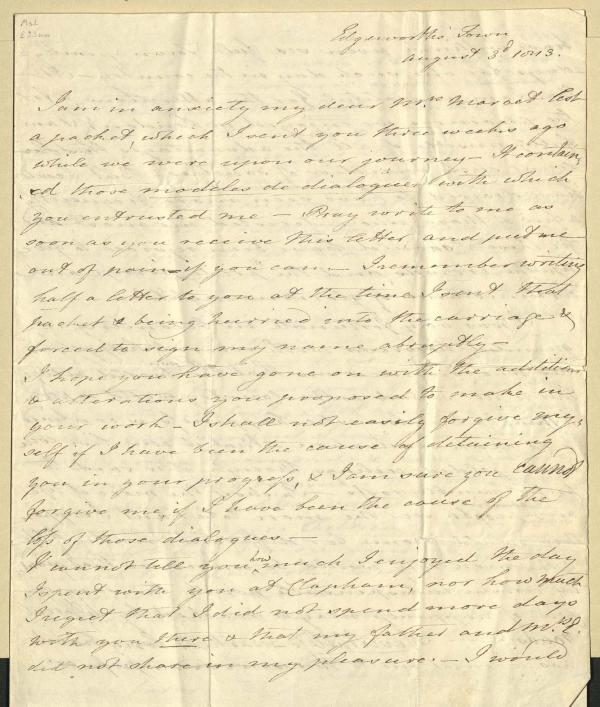 Edgeworth's Town
August 3d 1813.
I am in anxiety my dear Mrs Marcet lest
a packet, which I sent you three weeks ago
while we were upon our journey – It contain,
ed those modèles de dialogues with which
you entrusted me – Pray write to me as
soon as you receive this letter and put me
out of pain – if you can – I remember writing
half a letter to you at the time I sent that
packet & being hurried into the carriage &
forced to sign my name abruptly –
I hope you have gone on with the additions
& alterations you proposed to make in
your work – I shall not easily forgive my,
self if I have been the cause of detaining
you in your progress, & I am sure you cannot
forgive me, if I have been the cause of the
loss of those dialogues –
I cannot tell you how much I enjoyed the day
I spent with you at Clapham, nor how much
I regret that I did not spend more days
with you there & that my father and Mrs E.
did not share in my pleasure. – I would